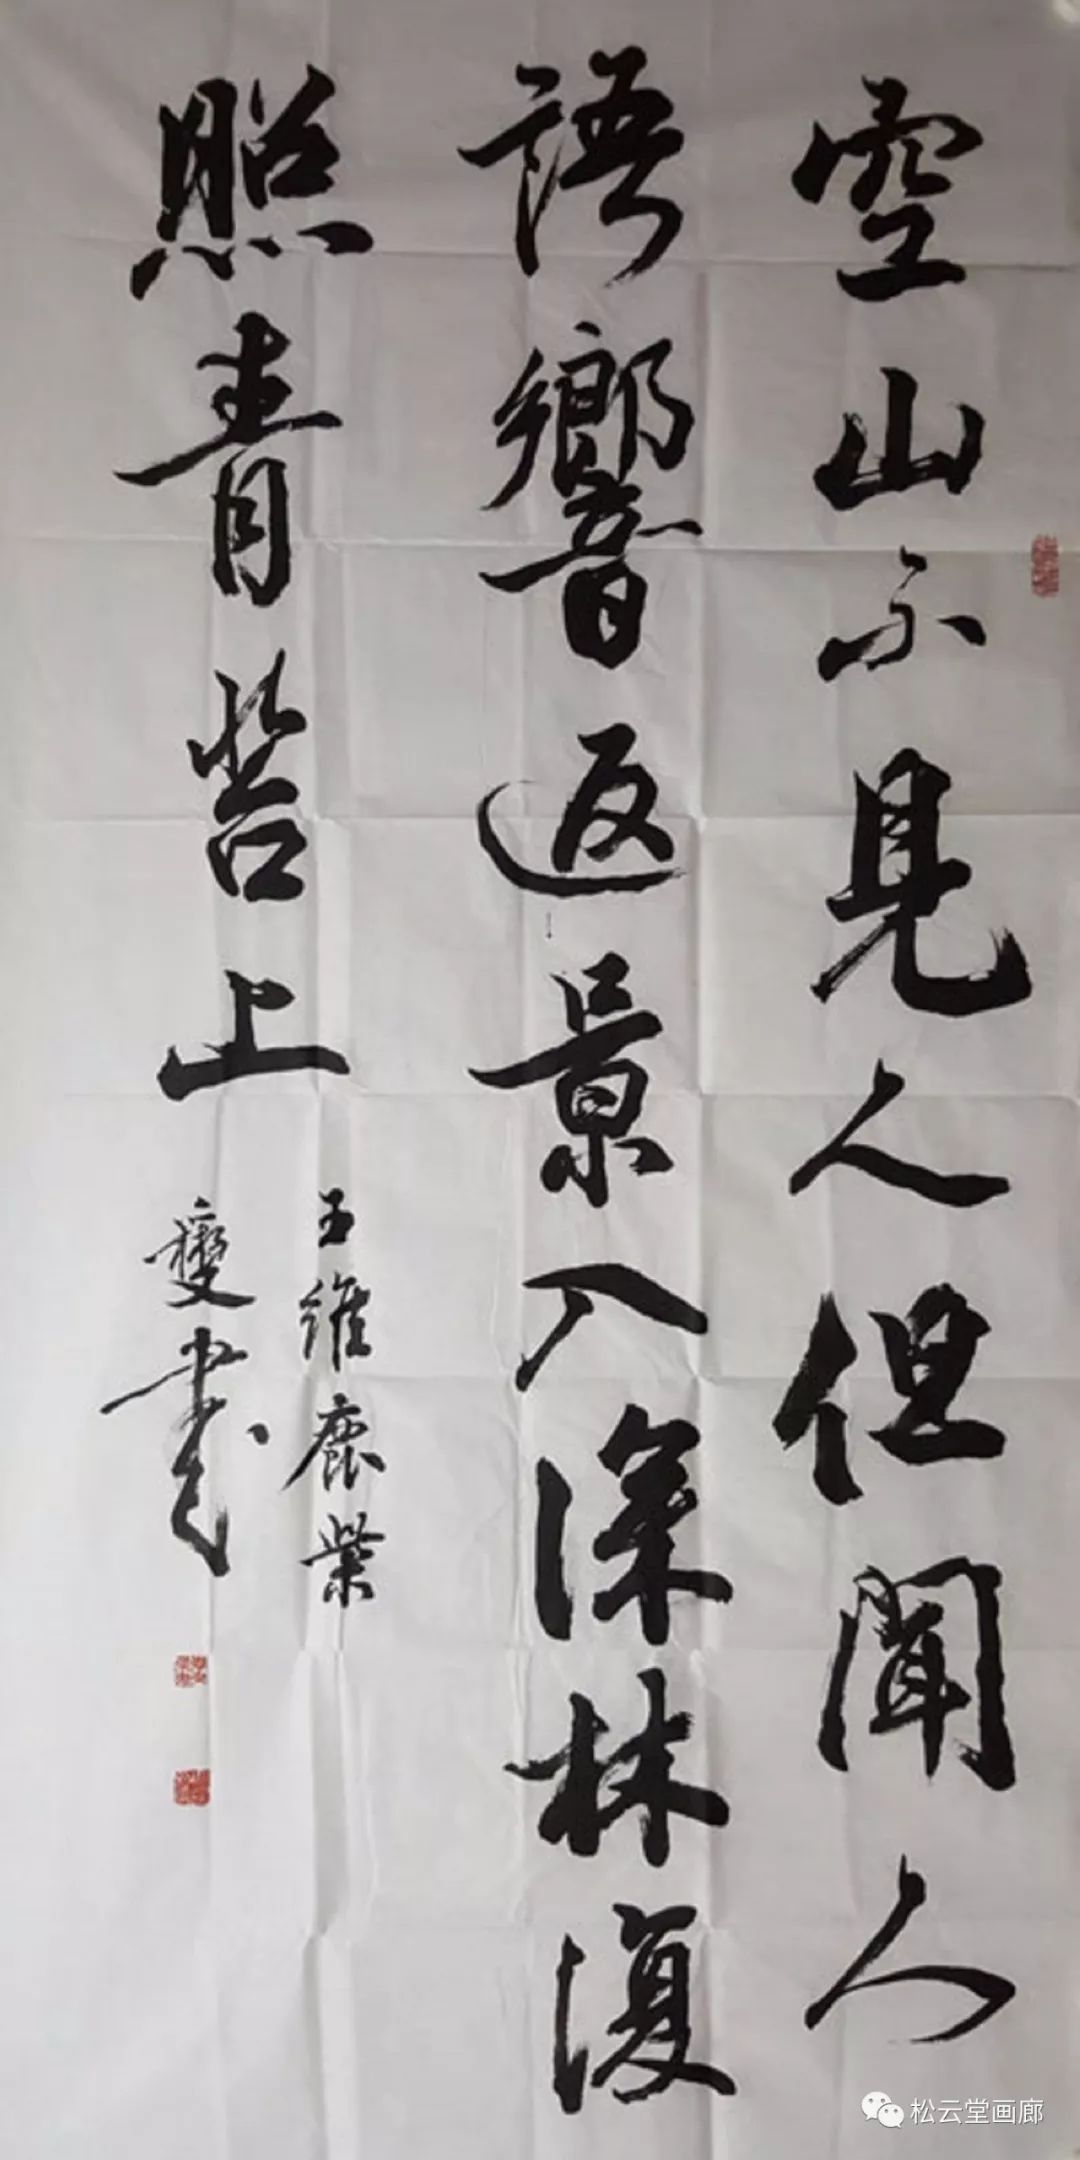 空山不見人但聞人
語響返景入深林復
照青苔上
王維鹿柴
書
松云堂画廊